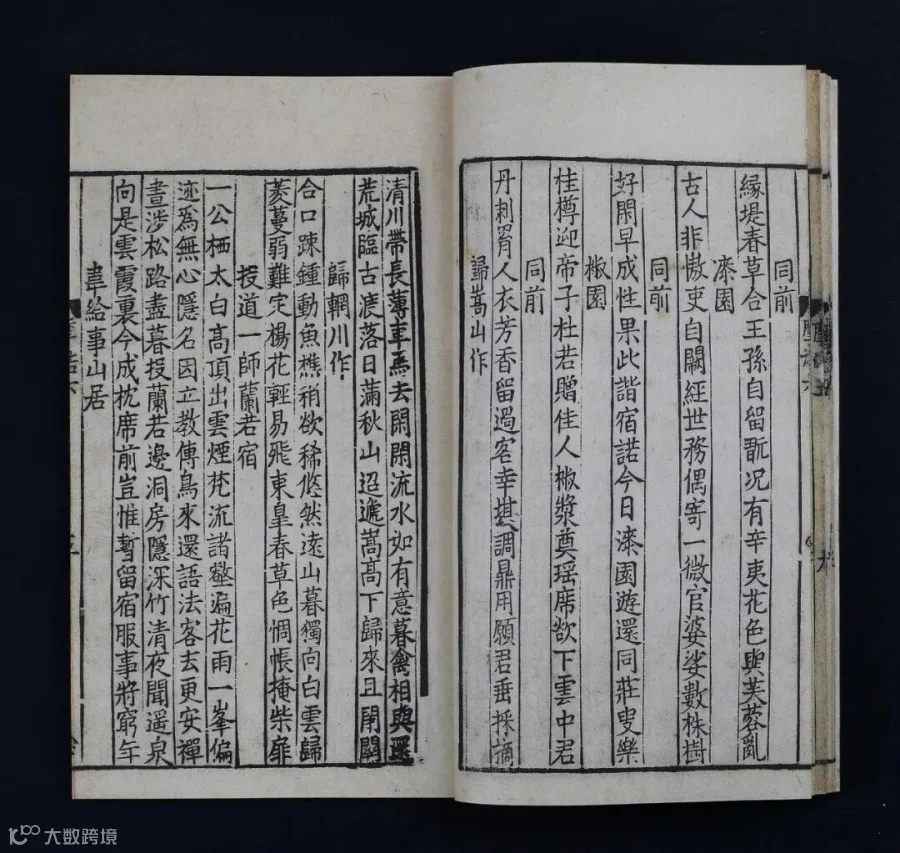 同前
緣堤春草合王孫自留翫况有辛夷花色與芙蓉亂
漆園
古人非傲吏自闕經世務偶寄一微官婆娑數株樹
同前
好閑早成性果此諧宿諾今日漆園遊還同莊叟樂
椒園
桂樽迎帝子杜若贈佳人椒漿奠瑤席欲下雲中君
同前
丹刺罥人衣芳香留過客幸堪調鼎用願君垂採摘
歸嵩山作
清川帶長薄車馬去閑閑流水如有意暮禽相與還
荒城臨古渡落日滿秋山迢遞嵩高下歸來且閉關
歸輞川作
合口踈鍾動魚樵稍欲稀悠然遠山暮獨向白雲歸
菱蔓弱難定楊花輕易飛東皐春草色惆悵掩柴扉
投道一師蘭若宿
一公栖太白高頂出雲煙梵流諸壑遍花雨一峯偏
迹為無心隱名因立教傳鳥來還語法客去更安禪
晝涉松路盡暮投蘭若邊洞房隱深竹清夜聞遥泉
向是雲霞裏今成枕席前豈惟暫留宿服事將窮年
韋給事山居
大数跨境